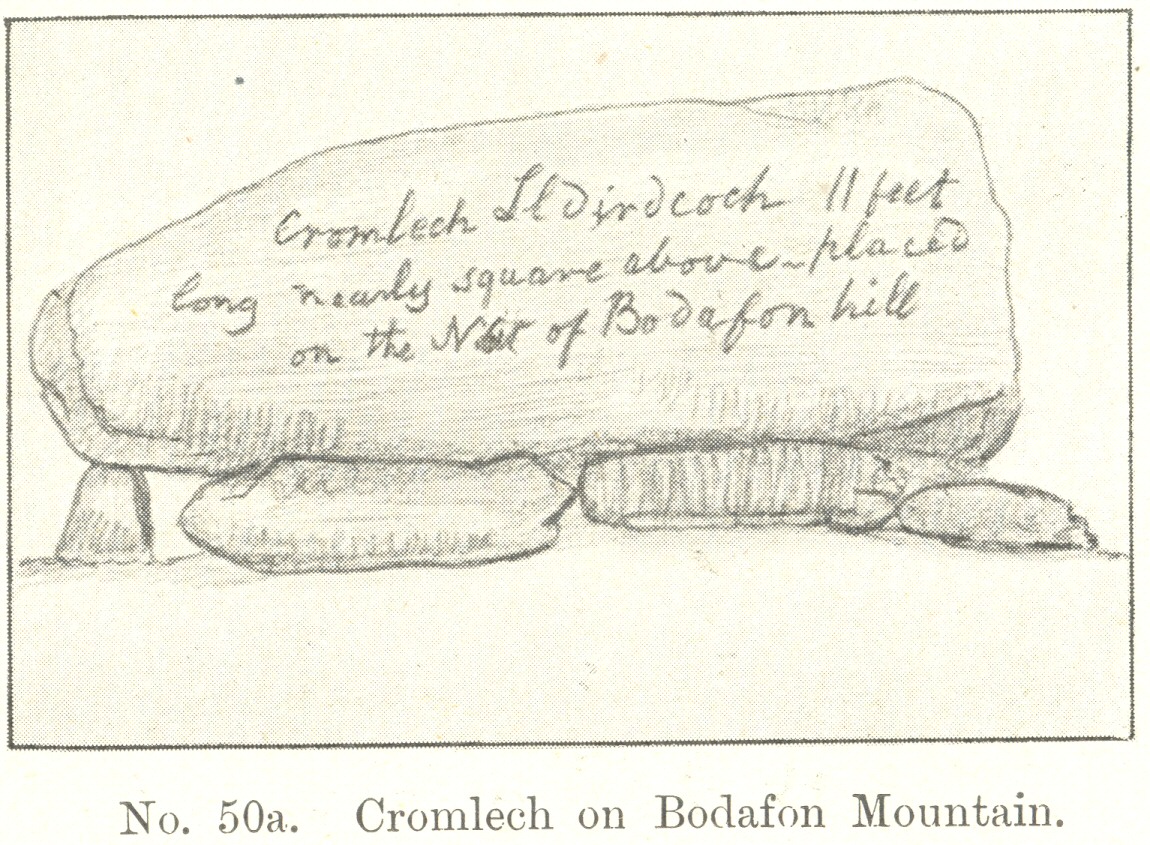 Cromlech Lldirdcoch 11 feet
long nearly square above - placed
on the of Bodafon hill
No. 50a. Cromlech on Bodafon Mountain.